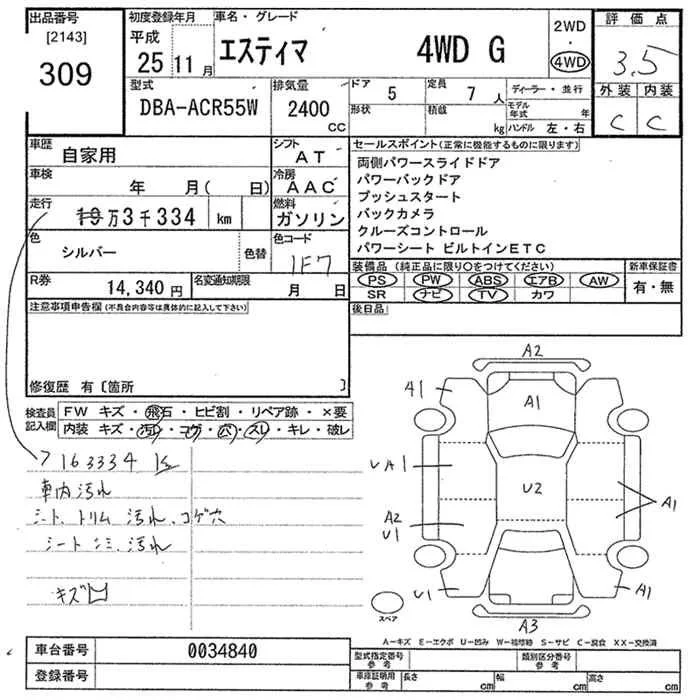 出品番号
[2143]
309
初度登録年月
平成
25 11月
車名・グレード
エスティマ 4WD G
2WD
・
4WD
評価点
3.5
外装 内装
C C
型式
DBA-ACR55W
排気量
2400
CC
ドア
5
定員
7 人
形状
積載
kg
ディーラー・並行
モデル
年式 年
ハンドル 左・右
車歴
自家用
シフト
AT
車検
年 月( 日)
冷房
AAC
走行
万3千334 km
燃料
ガソリン
色
シルバー
色替
色コード
1F7
R券
14,340 円
名変通知期限
月 日
セールスポイント(正常に機能するものに限ります)
両側パワースライドドア
パワーバックドア
プッシュスタート
バックカメラ
クルーズコントロール
パワーシート ビルトインETC
装備品 (純正品に限り○をつけてください)
PS PW ABS エアB AW
SR ナビ TV カワ
新車保証書
有・無
後日品
注意事項申告欄(不具合内容等は具体的に記入して下さい)
修復歴 有〔箇所 〕
検査員
記入欄
FW キズ・飛石・ヒビ割・リペア跡・×要
内装 キズ・汚レ・コゲ・穴・スレ・キレ・破レ
163334 k
車内汚れ
シート、トリム 汚れ、コゲ穴
シート シミ、汚れ
キズ凹
A2
A1
A1
UA1
U2
A1
A2
U1
U1
A1
A3
スペア
A-キズ E-エクボ U-凹み W-補修跡 S-サビ C-腐食 XX-交換済
車台番号
0034840
登録番号
型式指定番号
参考
類別区分番号
参考
車庫証明用
参考
長さ cm
幅 cm
高さ cm